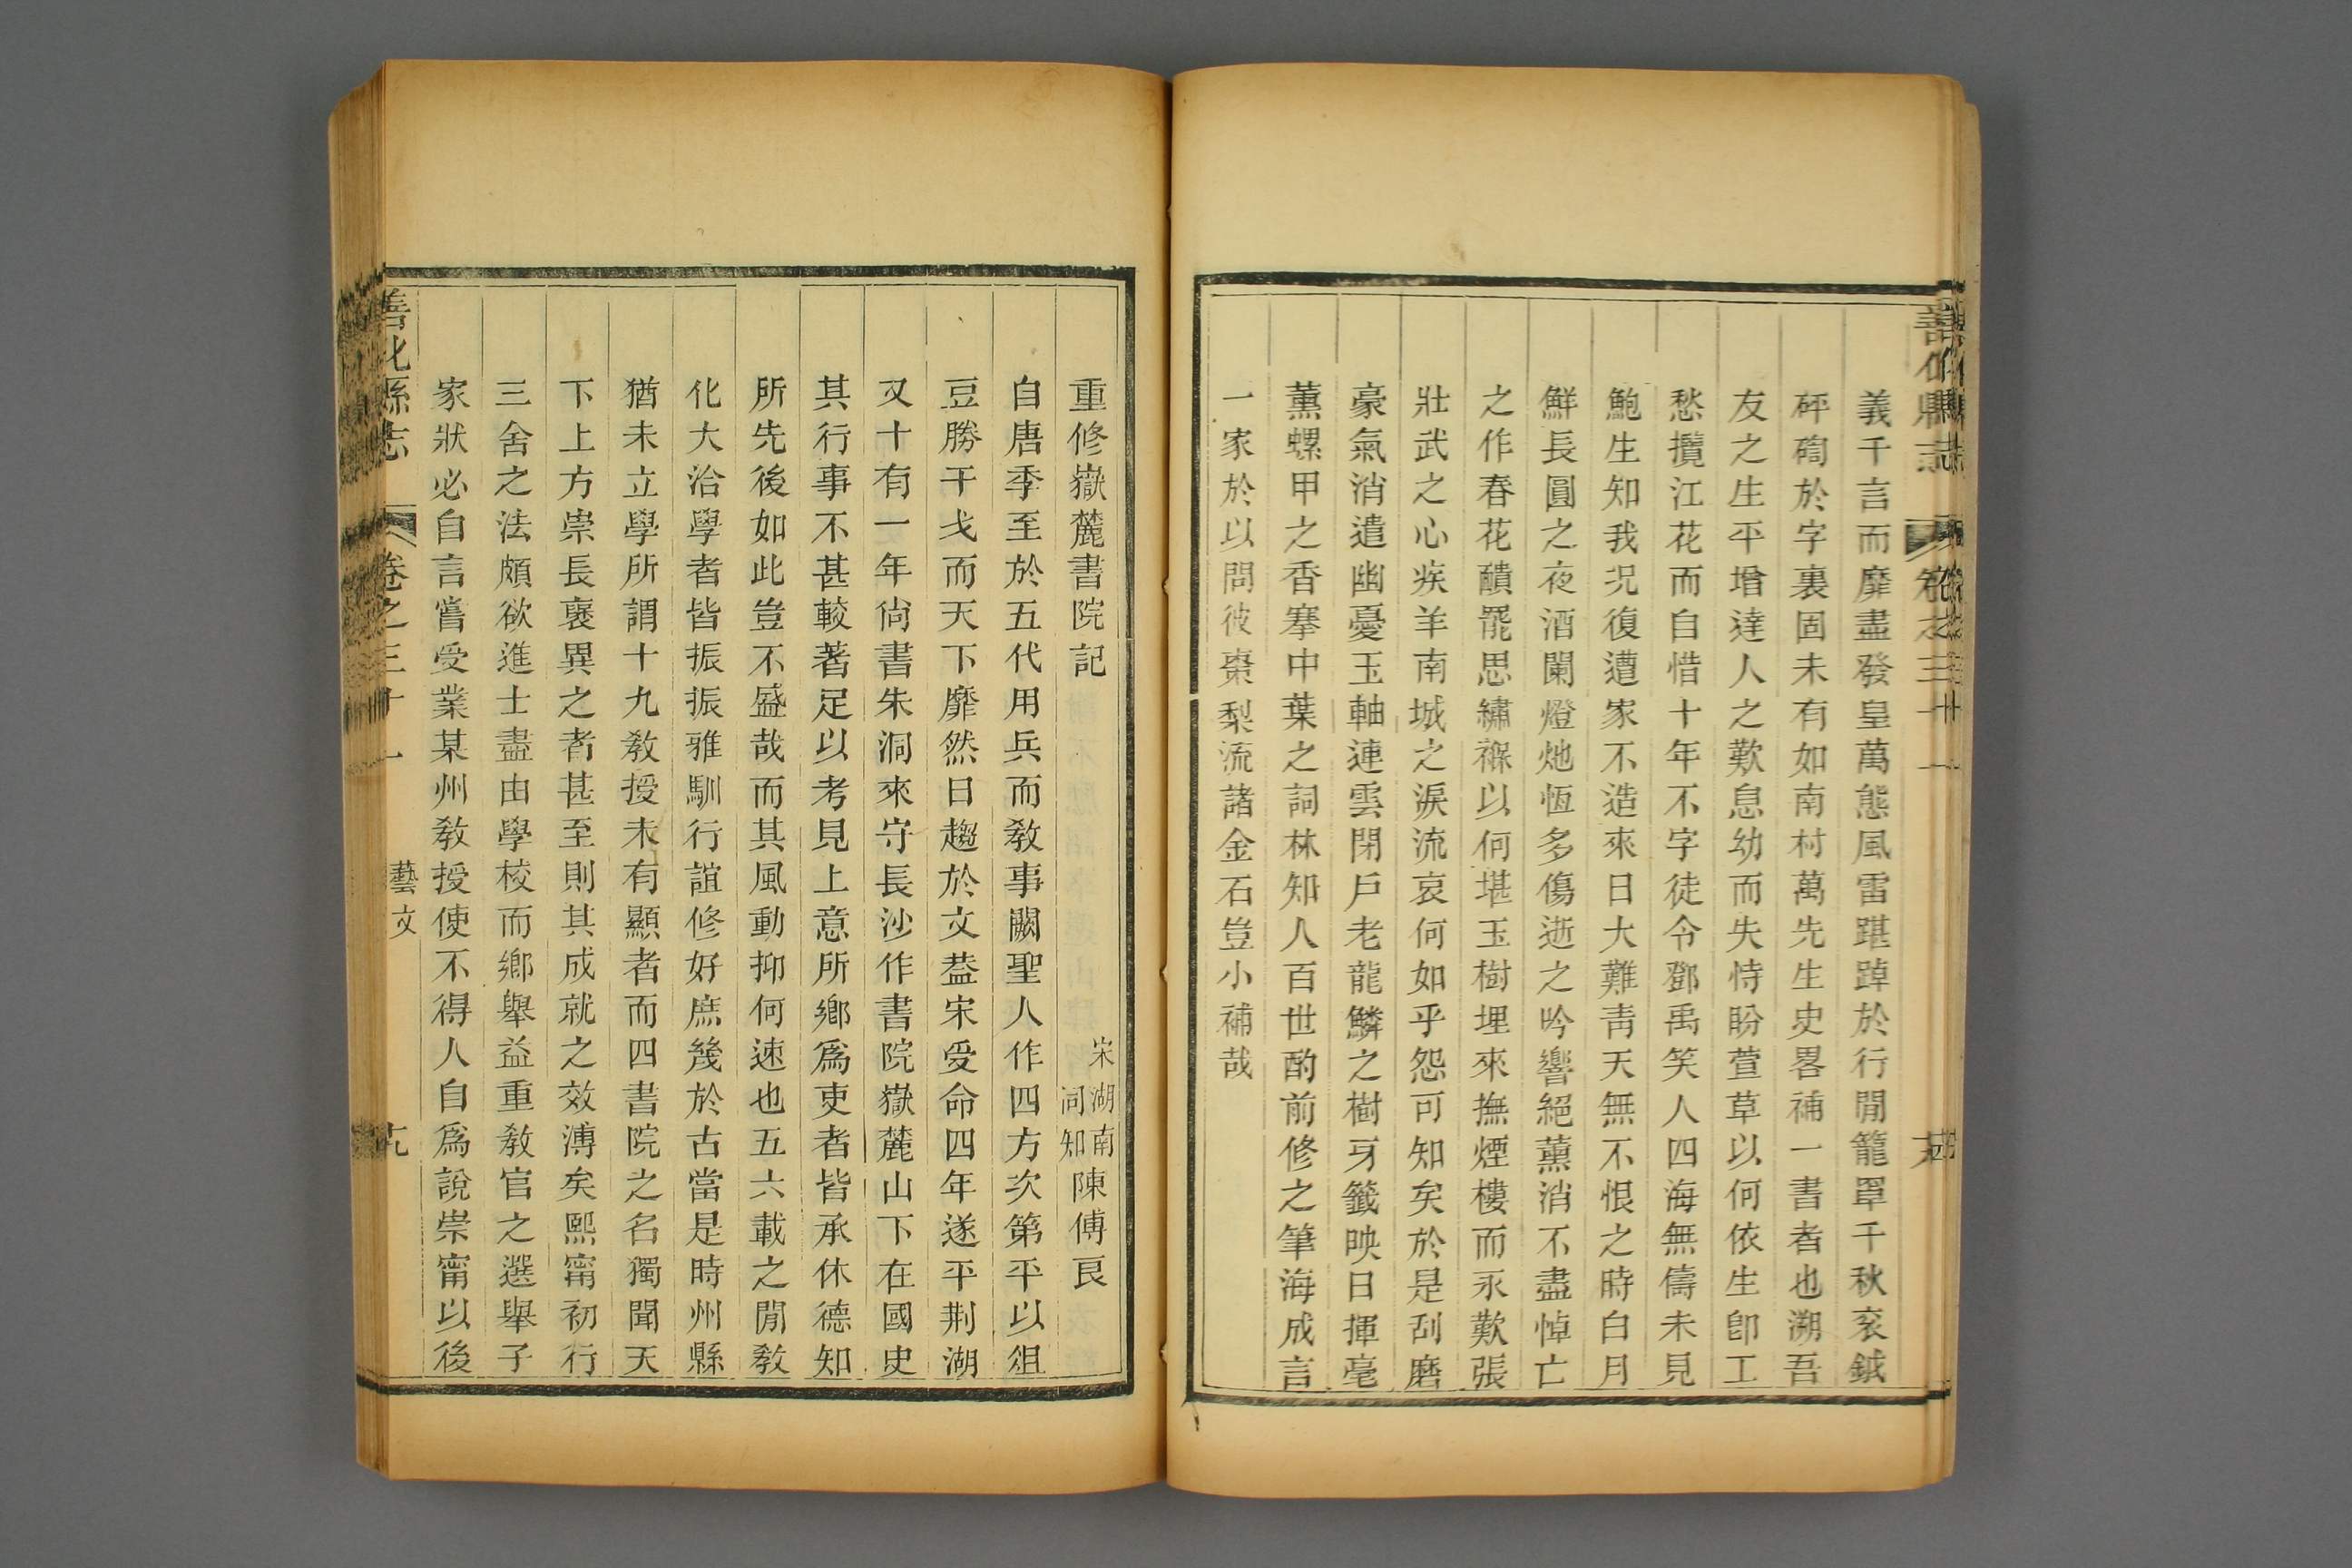 義千言而靡盡發皇萬態風雷踸踔於行閒籠罩千秋衮鉞
砰磤於字裏固未有如南村萬先生史畧補一書者也溯吾
友之生平增達人之歎息幼而失恃盼萱草以何依生卽工
愁攬江花而自惜十年不字徒令鄧禹笑人四海無儔未見
鮑生知我况復遭家不造來日大難靑天無不恨之時白月
鮮長圓之夜酒闌燈灺恆多傷逝之吟響絕薰消不盡悼亡
之作春花醼罷思繡褓以何堪玉樹埋來撫煙樓而永歎張
壯武之心疾羊南城之淚流哀何如乎怨可知矣於是刮磨
豪氣消遣幽憂玉軸連雲閉戶老龍鱗之樹牙籤映日揮毫
薰螺甲之香搴中葉之詞林知人百世酌前修之筆海成言
一家於以問彼棗梨流諸金石豈小補哉
重修嶽麓書院記 宋湖南同知陳傅良
自唐季至於五代用兵而敎事闕聖人作四方次第平以俎
豆勝干戈而天下靡然日趨於文葢宋受命四年遂平荆湖
又十有一年尙書朱洞來守長沙作書院嶽麓山下在國史
其行事不甚較著足以考見上意所鄉爲吏者皆承休德知
所先後如此豈不盛哉而其風動抑何速也五六載之閒敎
化大洽學者皆振振雅馴行誼修好庶幾於古當是時州縣
猶未立學所謂十九敎授未有顯者而四書院之名獨聞天
下上方崇長襃異之者甚至則其成就之效溥矣熙甯初行
三舍之法頗欲進士盡由學校而鄉舉益重敎官之選舉子
家狀必自言嘗受業某州敎授使不得人自爲說崇甯以後
善化縣志 卷之三十一 藝文 十九